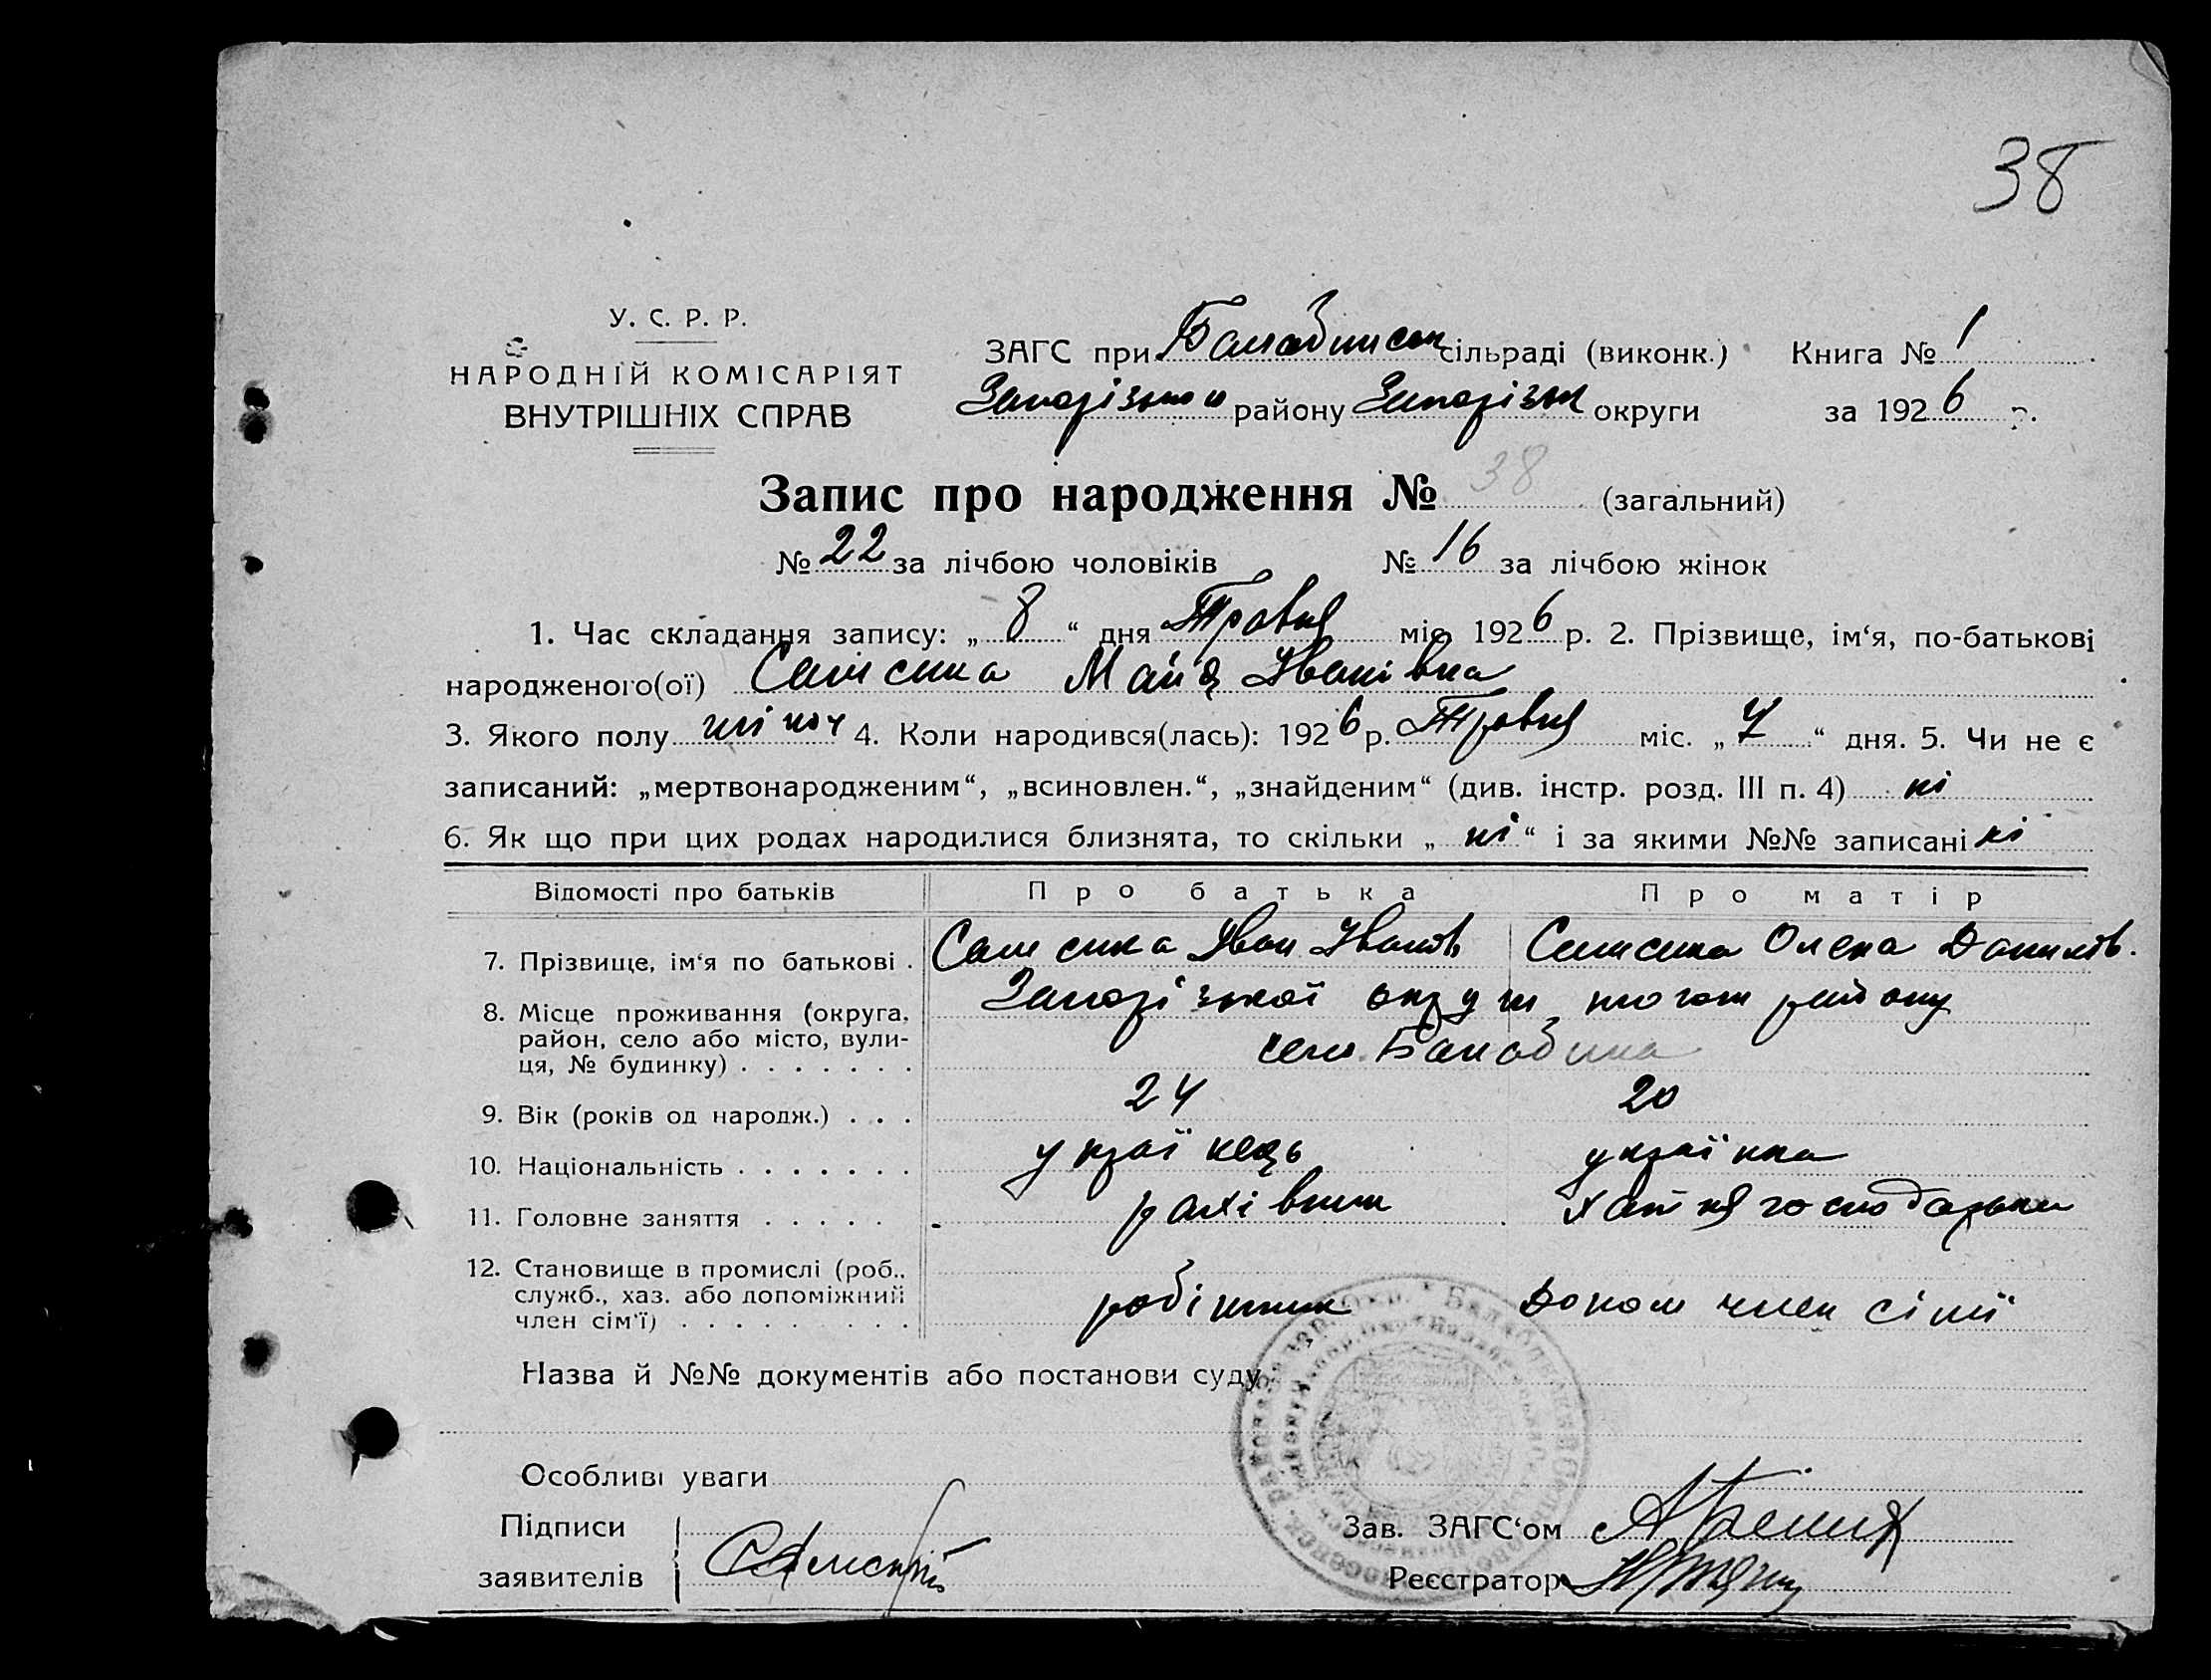 38
У. С. Р. Р.
НАРОДНІЙ КОМІСАРІЯТ
ВНУТРІШНІХ СПРАВ
ЗАГС при Балабинськ сільраді (виконк.) Книга № 1
Запорізького району Запорізьк округи за 1926 р.
Запис про народження № 38 (загальний)
№ 22 за лічбою чоловіків № 16 за лічбою жінок
1. Час складання запису: „ 8 “ дня Травня міс 1926 р. 2. Прізвище, ім‘я, по-батькові
народженого(ої) Майя Іванівка
3. Якого полу жіноч 4. Коли народився(лась): 1926 р. Травня міс. „ “ дня. 5. Чи не є
записаний: „мертвонародженим“, „всиновлен.“, „знайденим“ (див. інстр. розд. III п. 4) ні
6. Як що при цих родах народилися близнята, то скільки „ ні “ і за якими №№ записані ні
Відомості про батьків Про батька Про матір
7. Прізвище, ім‘я по батькові . Іван Іванов Олена Данилов.
8. Місце проживання (округа, Запорізької округи того ж району
район, село або місто, вули- село Балабина
ця, № будинку) . . . . . . .
9. Вік (років од народж.) . . . 24 20
10. Національність . . . . . . . українець українка
11. Головне заняття . . . . . рахівник хатня господарька
12. Становище в промислі (роб.,
служб., хаз. або допоміжний робітник допом член сімї
член сім‘ї) . . . . . . . . .
Назва й №№ документів або постанови суду
Особливі уваги
Підписи
заявителів
Зав. ЗАГС‘ом
Реєстратор